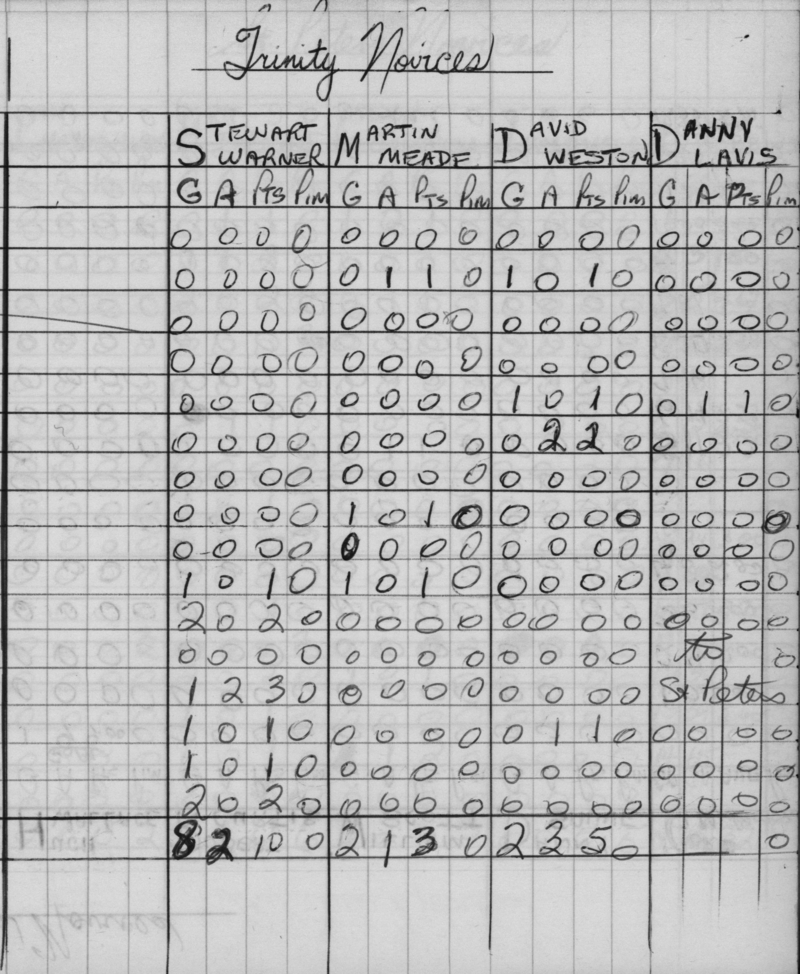 Trinity Novices
STEWART WARNER MARTIN MEADE DAVID WESTON DANNY LAVIS
G A Pts Pim G A Pts Pim G A Pts Pim G A Pts Pim
0 0 0 0 0 0 0 0 0 0 0 0 0 0 0 0
0 0 0 0 0 1 1 0 1 0 1 0 0 0 0 0
0 0 0 0 0 0 0 0 0 0 0 0 0 0 0 0
0 0 0 0 0 0 0 0 0 0 0 0 0 0 0 0
0 0 0 0 0 0 0 0 1 0 1 0 0 1 1 0
0 0 0 0 0 0 0 0 0 2 2 0 0 0 0 0
0 0 0 0 0 0 0 0 0 0 0 0 0 0 0 0
0 0 0 0 1 0 1 0 0 0 0 0 0 0 0 0
0 0 0 0 0 0 0 0 0 0 0 0 0 0 0 0
1 0 1 0 1 0 1 0 0 0 0 0 0 0 0 0
2 0 2 0 0 0 0 0 0 0 0 0 0 0 0 0
0 0 0 0 0 0 0 0 0 0 0 0 to 0
1 2 3 0 0 0 0 0 0 0 0 0 St Peters
1 0 1 0 0 0 0 0 0 1 1 0 0 0 0 0
1 0 1 0 0 0 0 0 0 0 0 0 0 0 0 0
2 0 2 0 0 0 0 0 0 0 0 0 0 0 0 0
8 2 10 0 2 1 3 0 2 3 5 0 0